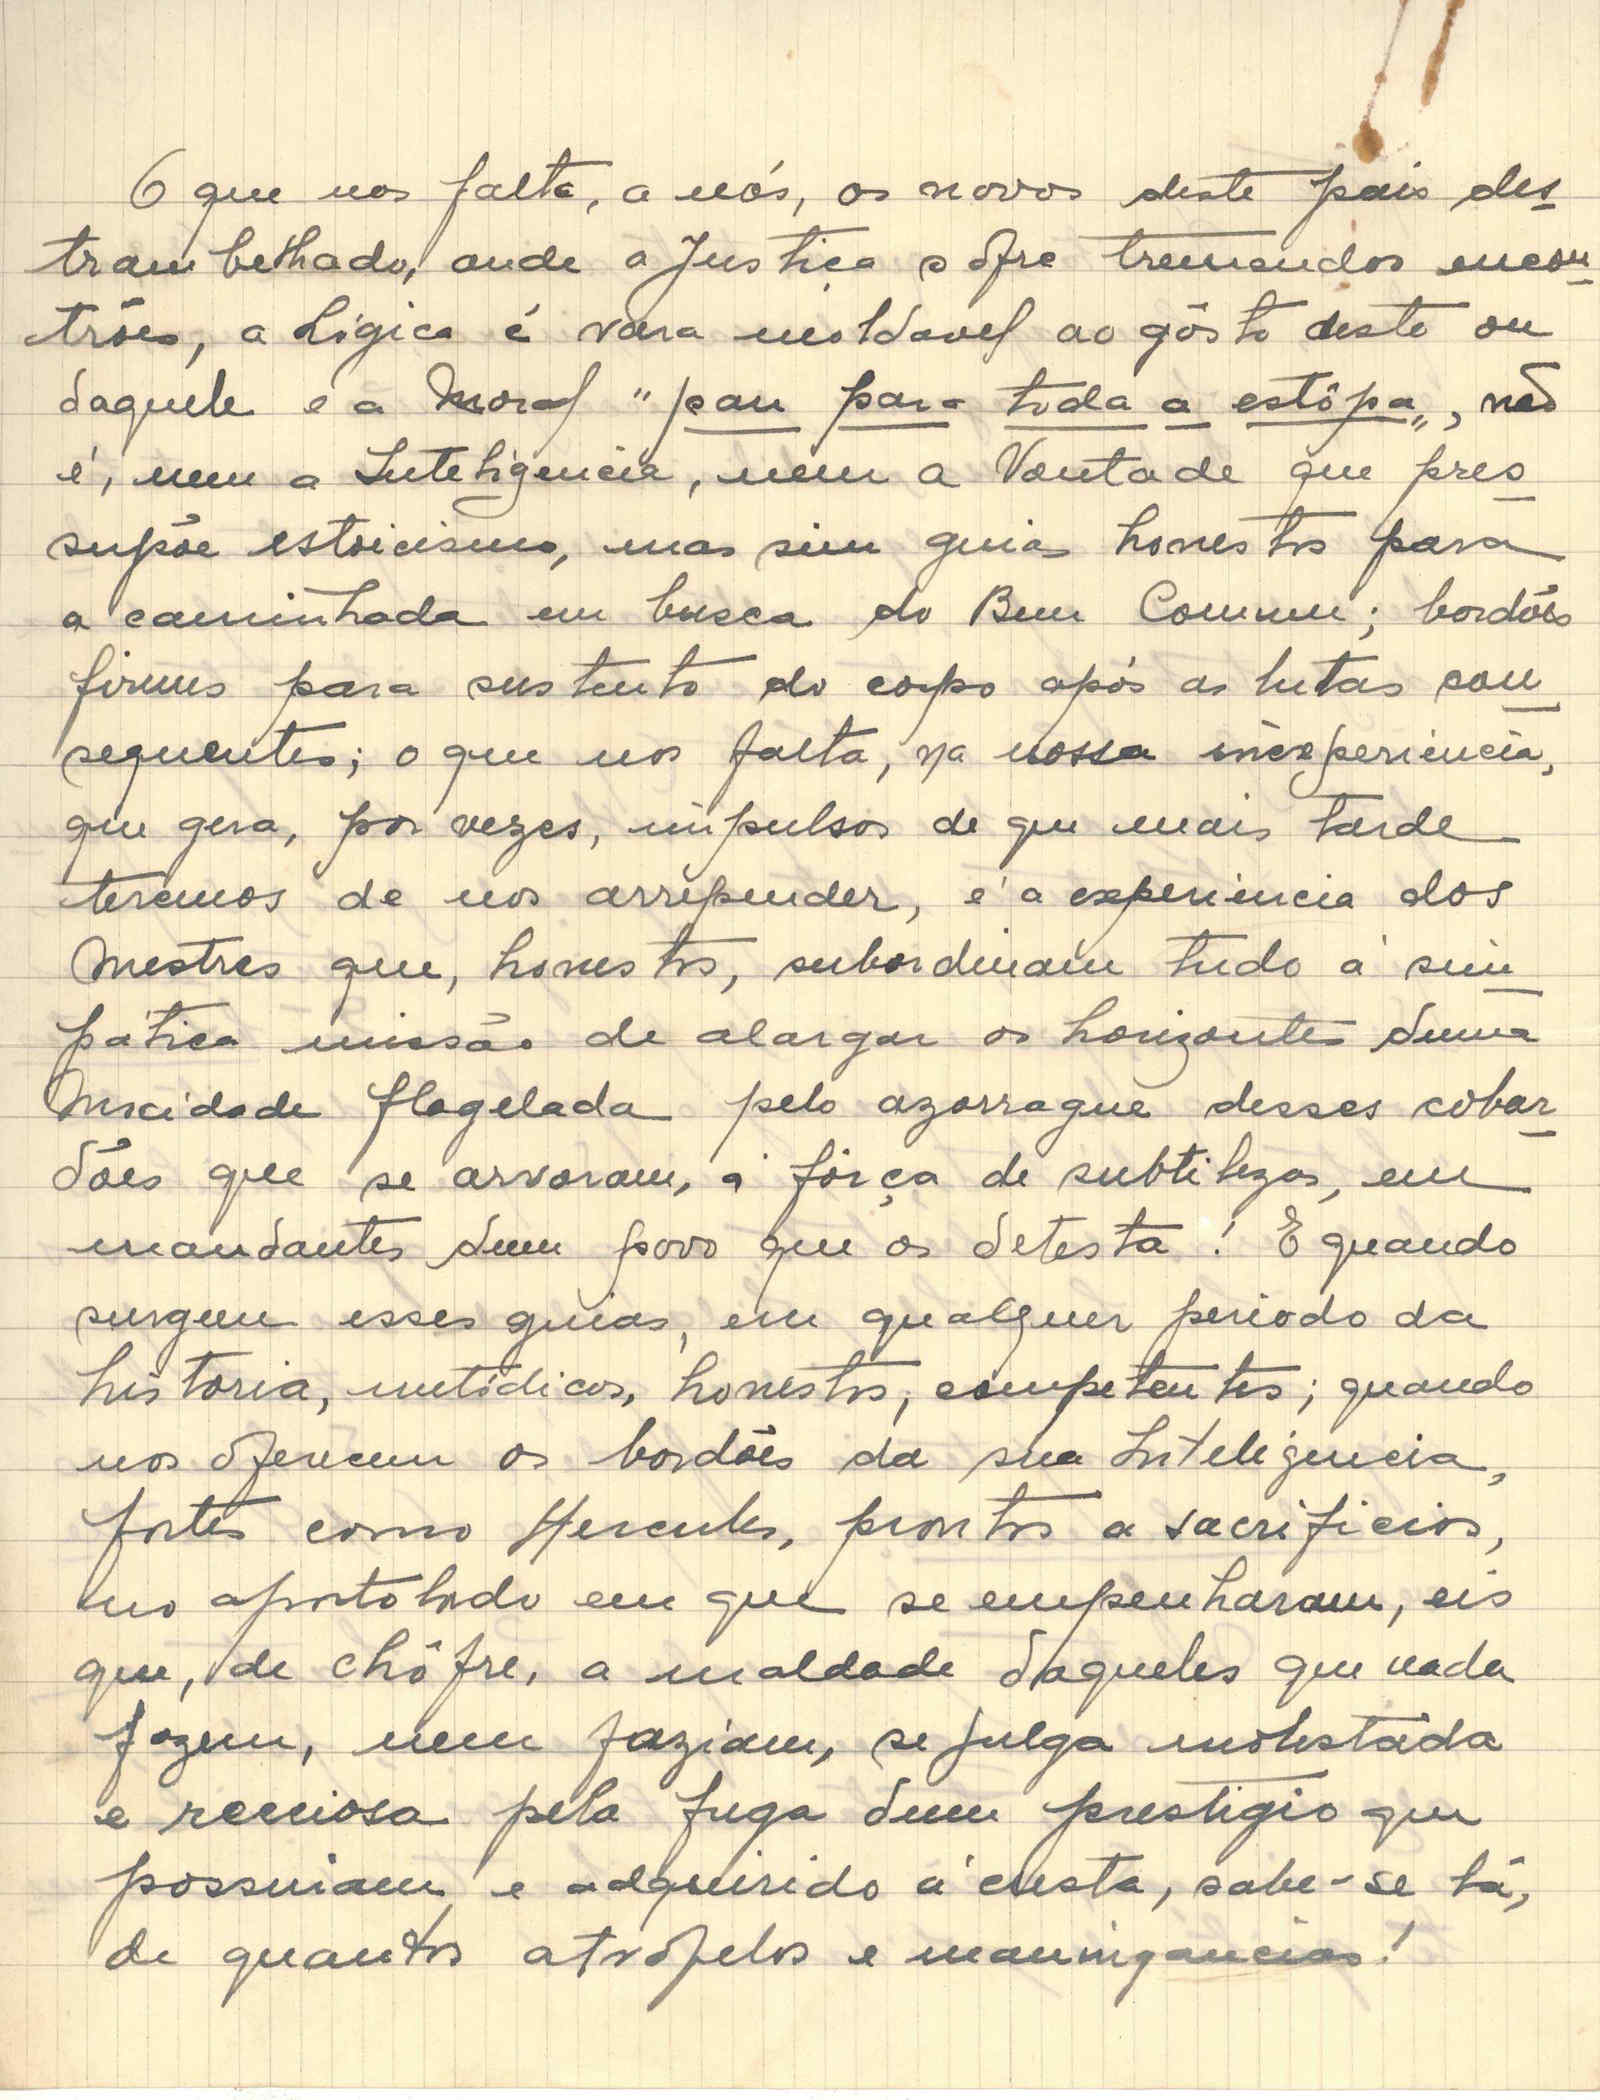 O que nos falta, a nós, os novos deste pais des-
trambelhado, onde a Justiça sofre tremendos encon-
trões, a Lógica é vara moldavel ao gôsto deste ou
daquele e a Moral "pau para toda a estôpa", não
é, nem a Inteligencia, nem a Vontade que pres-
supõe estoicismo, mas sim guias honestos para
a caminhada em busca do Bem Comum; bordões
firmes para sustento do corpo após as lutas con-
sequentes; o que nos falta, na nossa inexperiencia,
que gera, por vezes, impulsos de que mais tarde
teremos de nos arrepender, é a experiencia dos
Mestres que, honestos, subordinam tudo á sim-
pática missão de alargar os horizontes duma
Mocidade flagelada pelo azorrague desses cobar-
dões que se arvoram, á fôrça de subtilezas, em
mandantes dum povo que os detesta! E quando
surgem esses guias, em qualquer periodo da
historia, metódicos, honestos, competentes; quando
nos oferecem os bordões da sua Inteligencia,
fortes como Hercules, prontos a sacrificios,
no apostolado em que se empenharam, eis
que, de chôfre, a maldade daqueles que nada
fazem, nem faziam, se julga molestada
e receiosa pela fuga dum prestigio que
possuiam e adquirido á custa, sabe-se lá,
de quantos atropelos e manigancias!